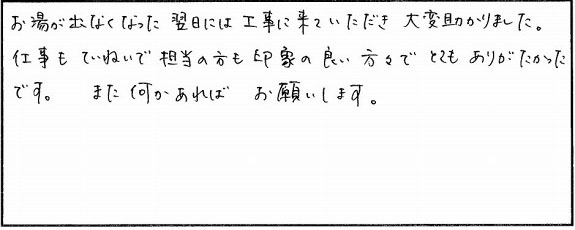 お湯が出なくなった 翌日には 工事に来ていただき 大変助かりました。
仕事も ていねいで 担当の方も 印象の良い 方々で とても ありがたかった
です。 また 何かあれば お願いします。